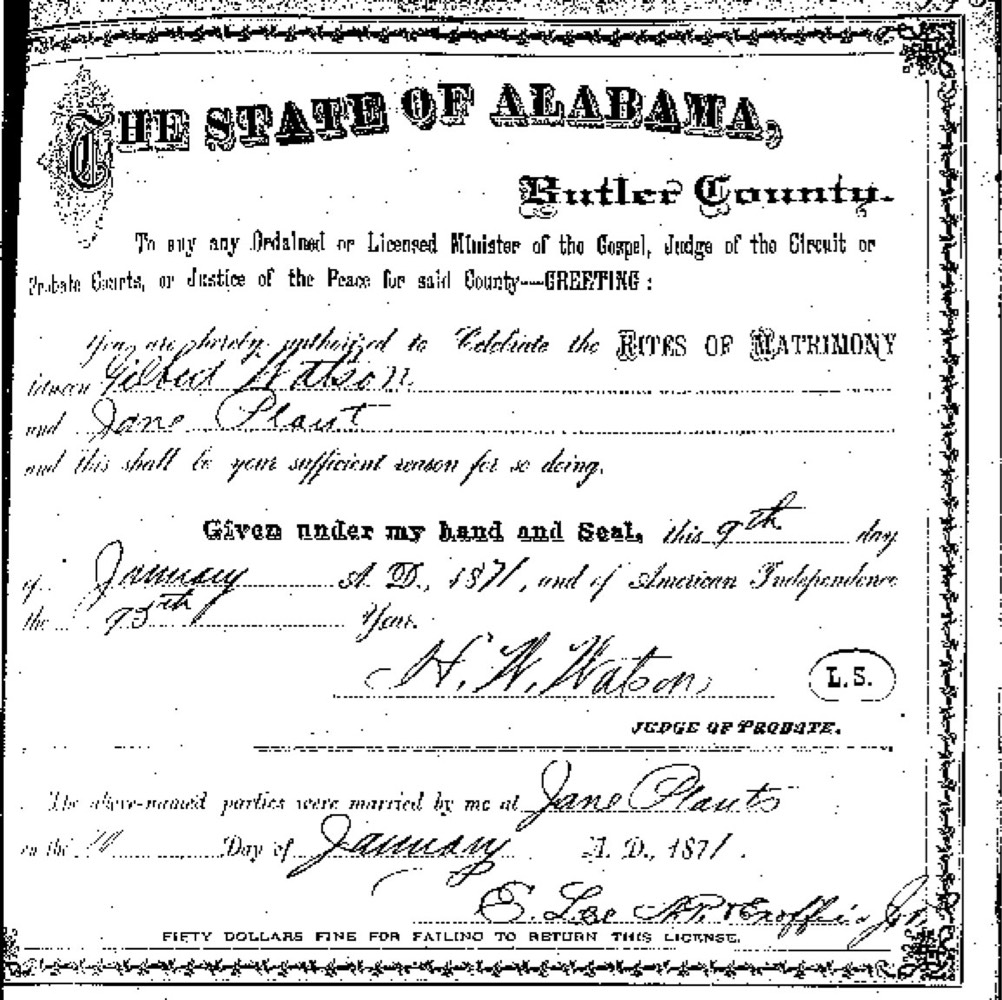 THE STATE OF ALABAMA,
Butler County.
To any any Ordained or Licensed Minister of the Gospel, Judge of the Circuit or
Probate Courts, or Justice of the Peace for said County—GREETING:
You are hereby authorized to Celebrate the RITES OF MATRIMONY
between Gilbert Watson
and Jane Plant
and this shall be your sufficient reason for so doing.
Given under my hand and Seal, this 9th day
of January A. D., 1871, and of American Independence
the 95th Year.
H. W. Watson
L.S.
JUDGE OF PROBATE.
The above-named parties were married by me at Jane Plants
on the 10 Day of January A. D., 1871.
E. Lee
FIFTY DOLLARS FINE FOR FAILING TO RETURN THIS LICENSE.